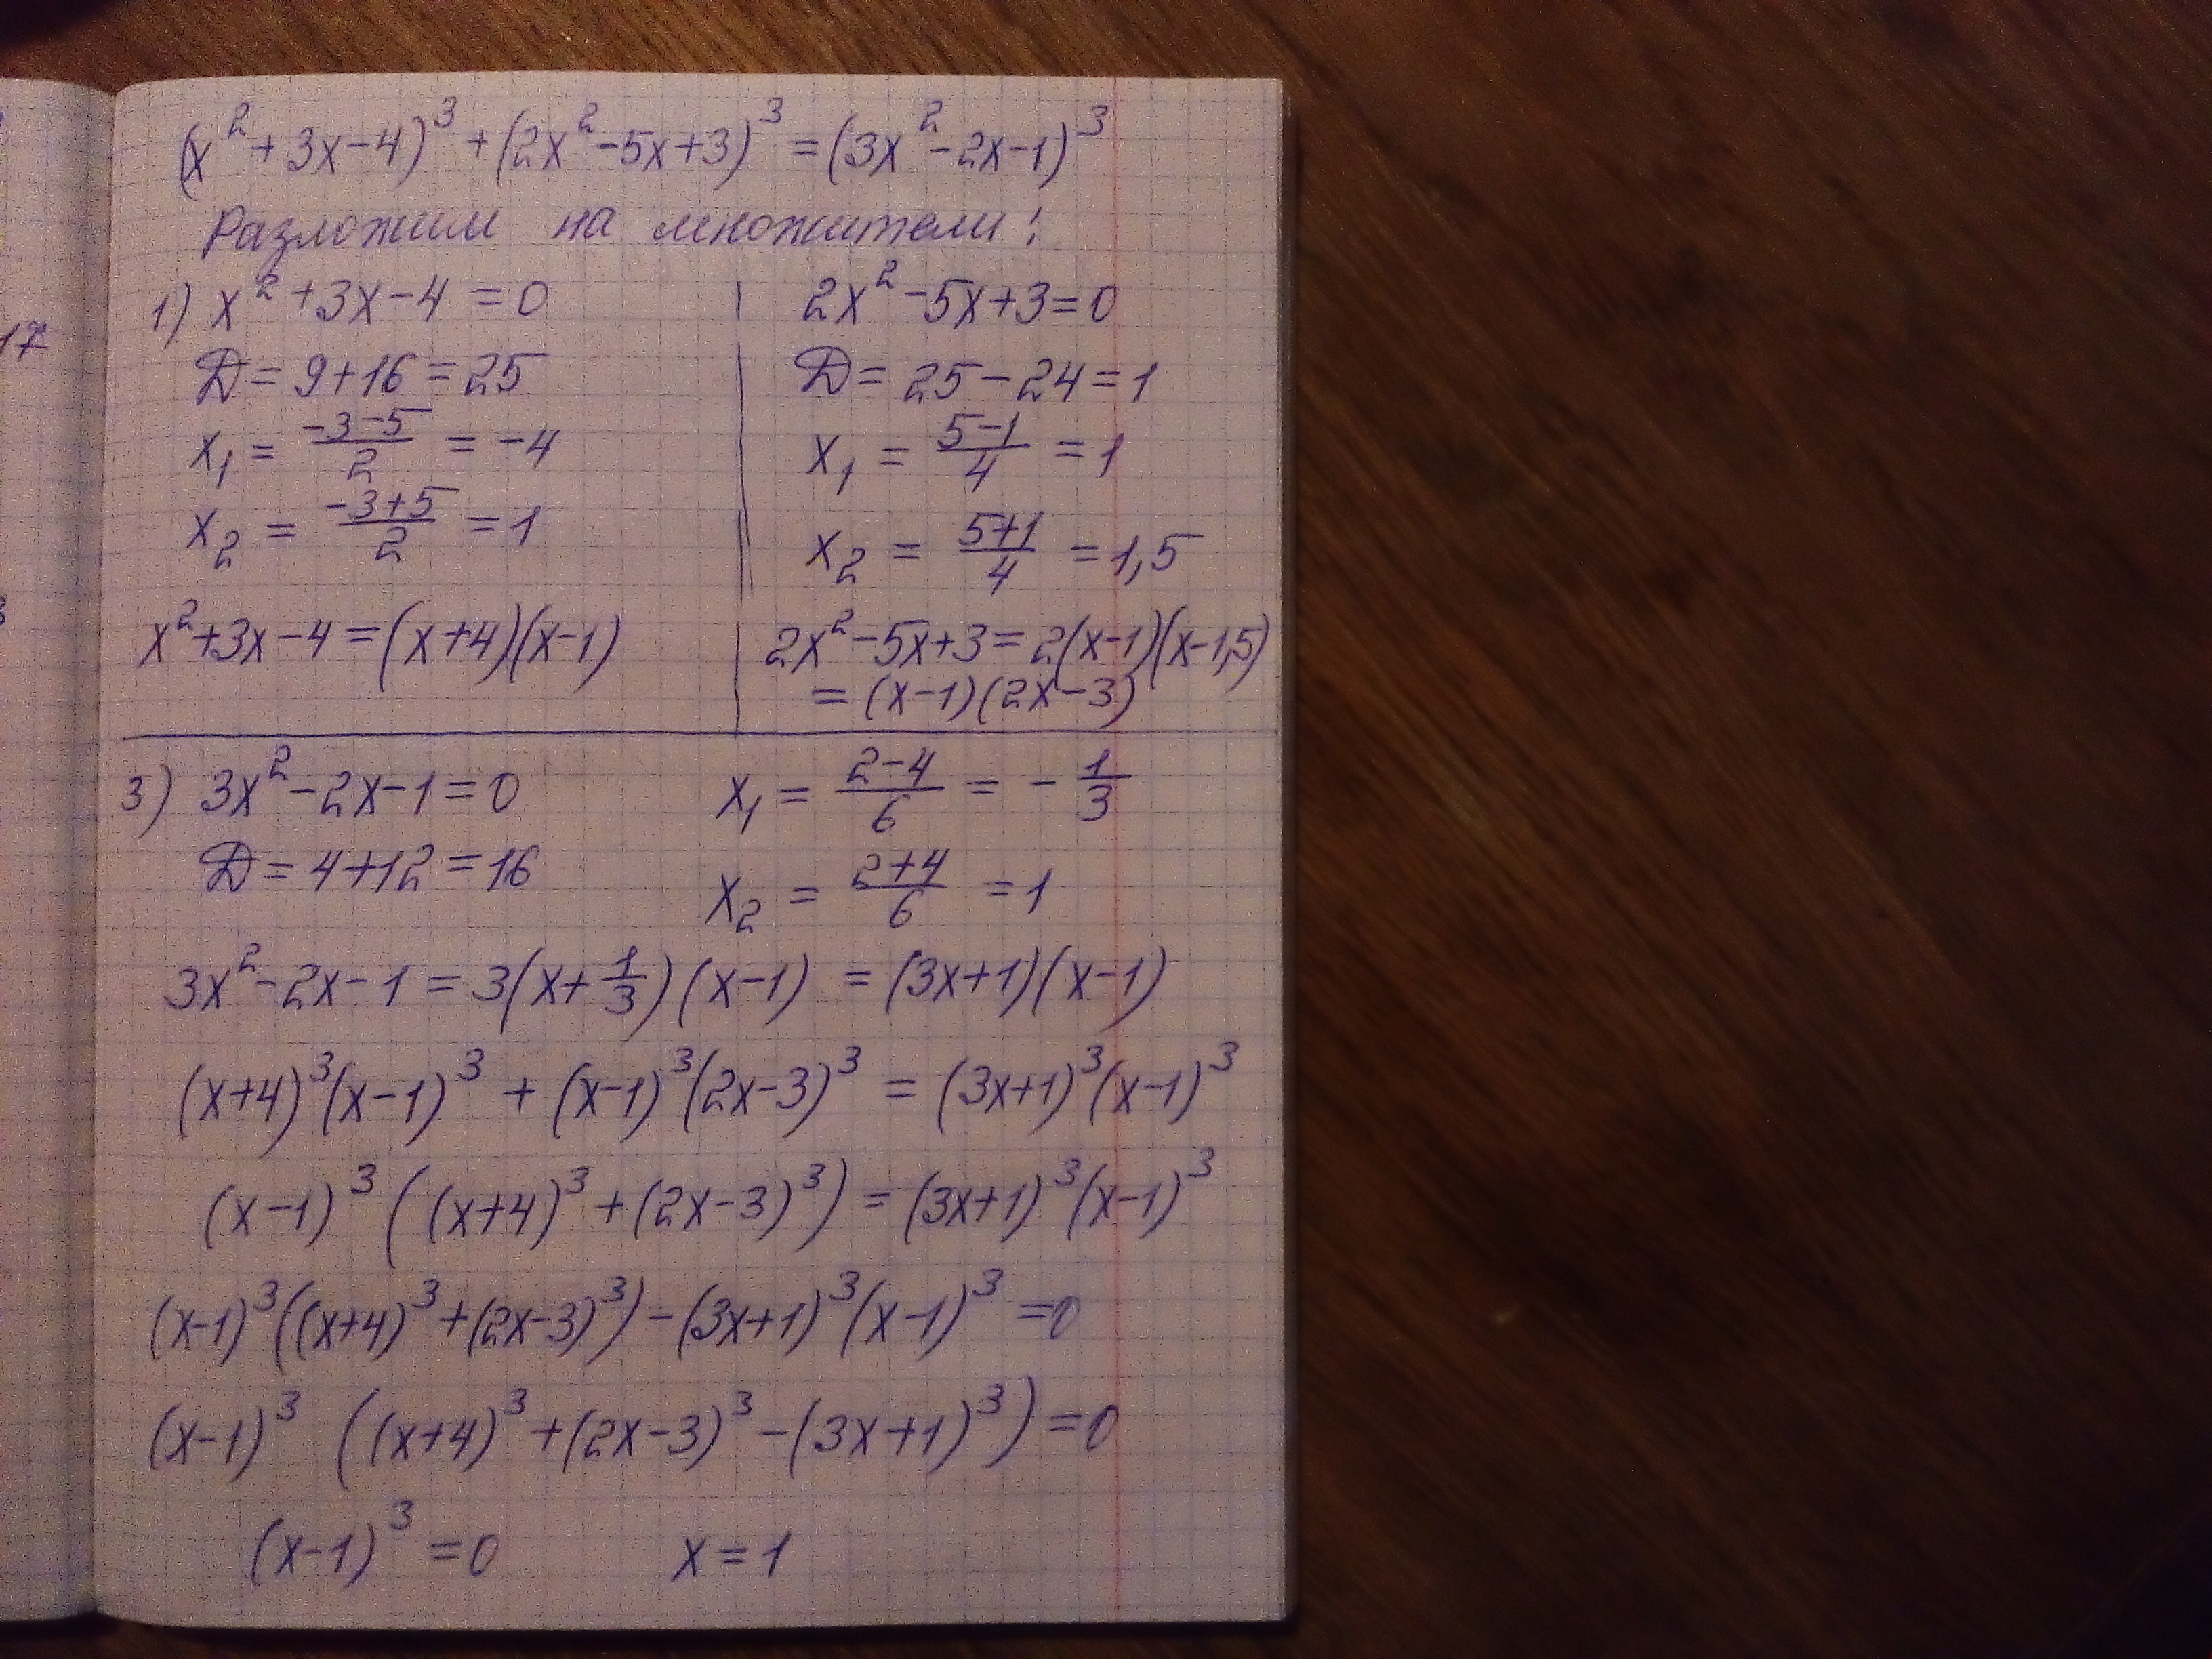 (x²+3x-4)³+(2x²-5x+3)³=(3x²-2x-1)³
Разложим на множители:
1) x²+3x-4=0
Д=9+16=25
x₁=(-3-5)/2=-4
x₂=(-3+5)/2=1
x²+3x-4=(x+4)(x-1)
2x²-5x+3=0
Д=25-24=1
x₁=(5-1)/4=1
x₂=(5+1)/4=1,5
2x²-5x+3=2(x-1)(x-1,5)
=(x-1)(2x-3)
3) 3x²-2x-1=0
Д=4+12=16
x₁=(2-4)/6=-1/3
x₂=(2+4)/6=1
3x²-2x-1=3(x+1/3)(x-1)=(3x+1)(x-1)
(x+4)³(x-1)³+(x-1)³(2x-3)³=(3x+1)³(x-1)³
(x-1)³((x+4)³+(2x-3)³)=(3x+1)³(x-1)³
(x-1)³((x+4)³+(2x-3)³)-(3x+1)³(x-1)³=0
(x-1)³((x+4)³+(2x-3)³-(3x+1)³)=0
(x-1)³=0 x=1
17